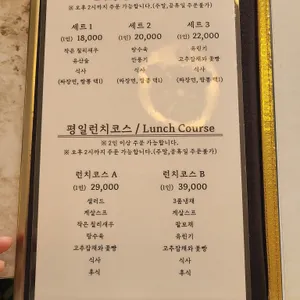 ※ 오후2시까지 주문 가능합니다.(주말,공휴일 주문불가)
세트 1 세트 2 세트 3
(1인) 18,000 (1인) 20,000 (1인) 22,000
작은 칠리새우 탕수육 유린기
유산슬 깐풍기 고추잡채와 꽃빵
식사 식사 식사
(짜장면, 짬뽕 택1) (짜장면, 짬뽕 택1) (짜장면, 짬뽕 택1)
평일런치코스 / Lunch Course
※ 2인 이상 주문 가능합니다.
※ 오후2시까지 주문 가능합니다.(주말,공휴일 주문불가)
런치코스 A
(1인) 29,000
샐러드
게살스프
작은 칠리새우
탕수육
고추잡채와 꽃빵
식사
후식
런치코스 B
(1인) 39,000
3품냉채
게살스프
팔보채
유린기
고추잡채와 꽃빵
식사
후식